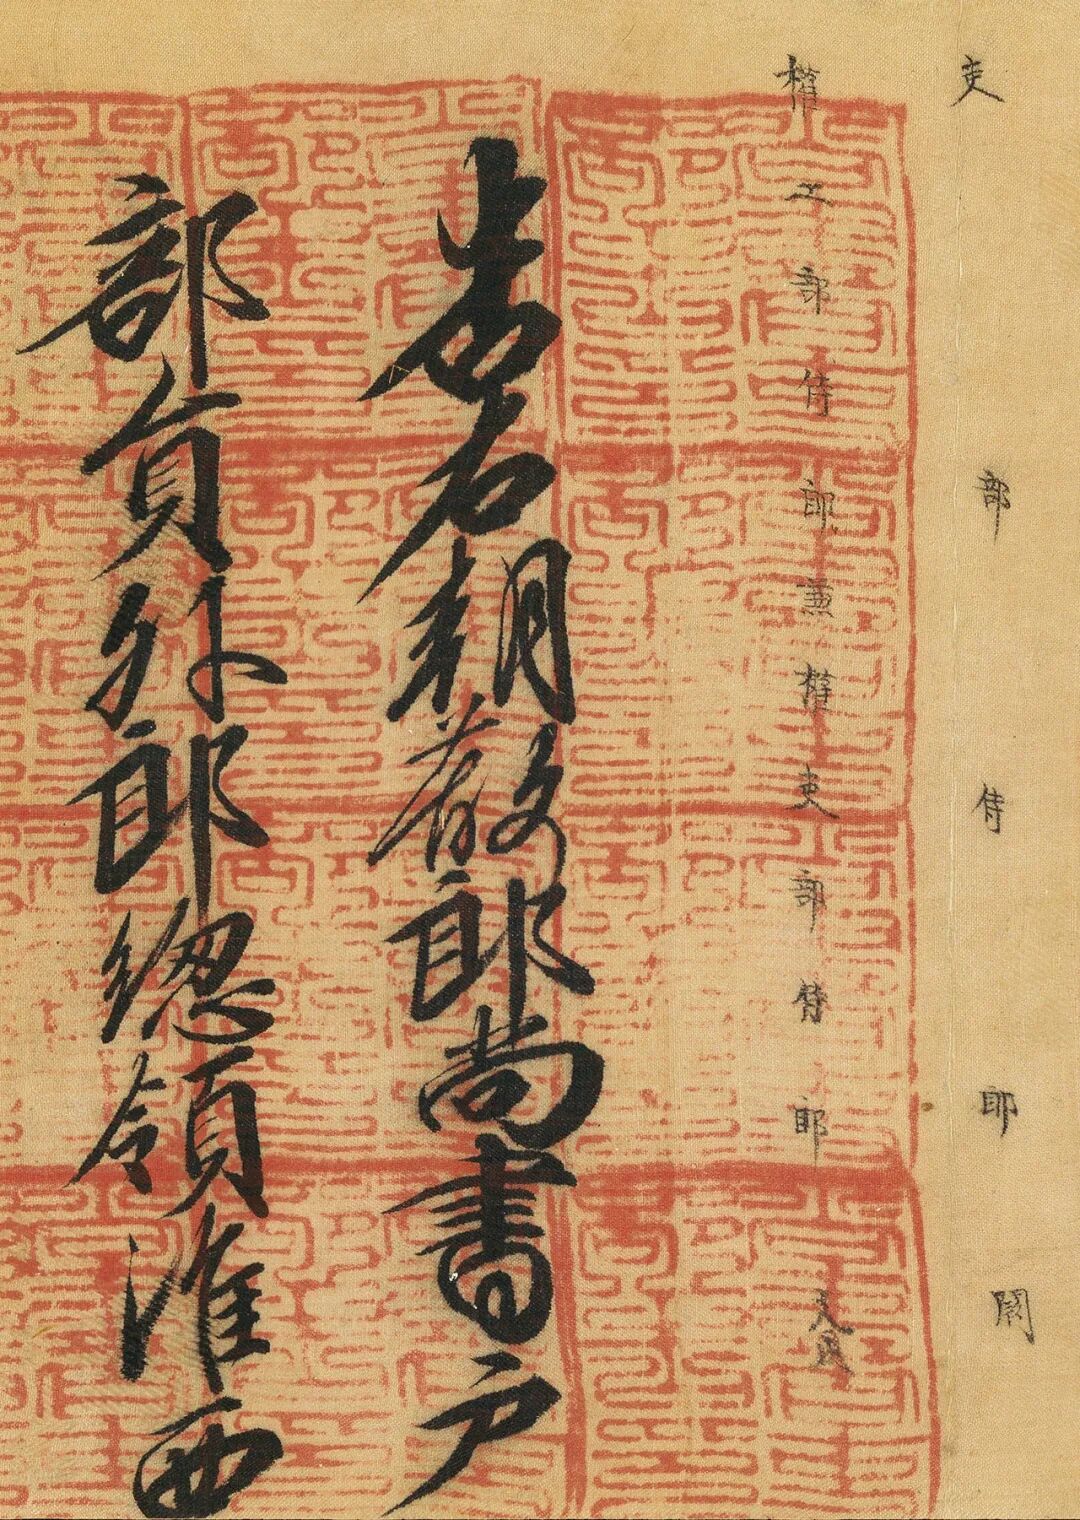 吏部侍郎闕
權工部侍郎兼權吏部侍郎
告右朝散郎尚書戶
部員外郎總領淮西